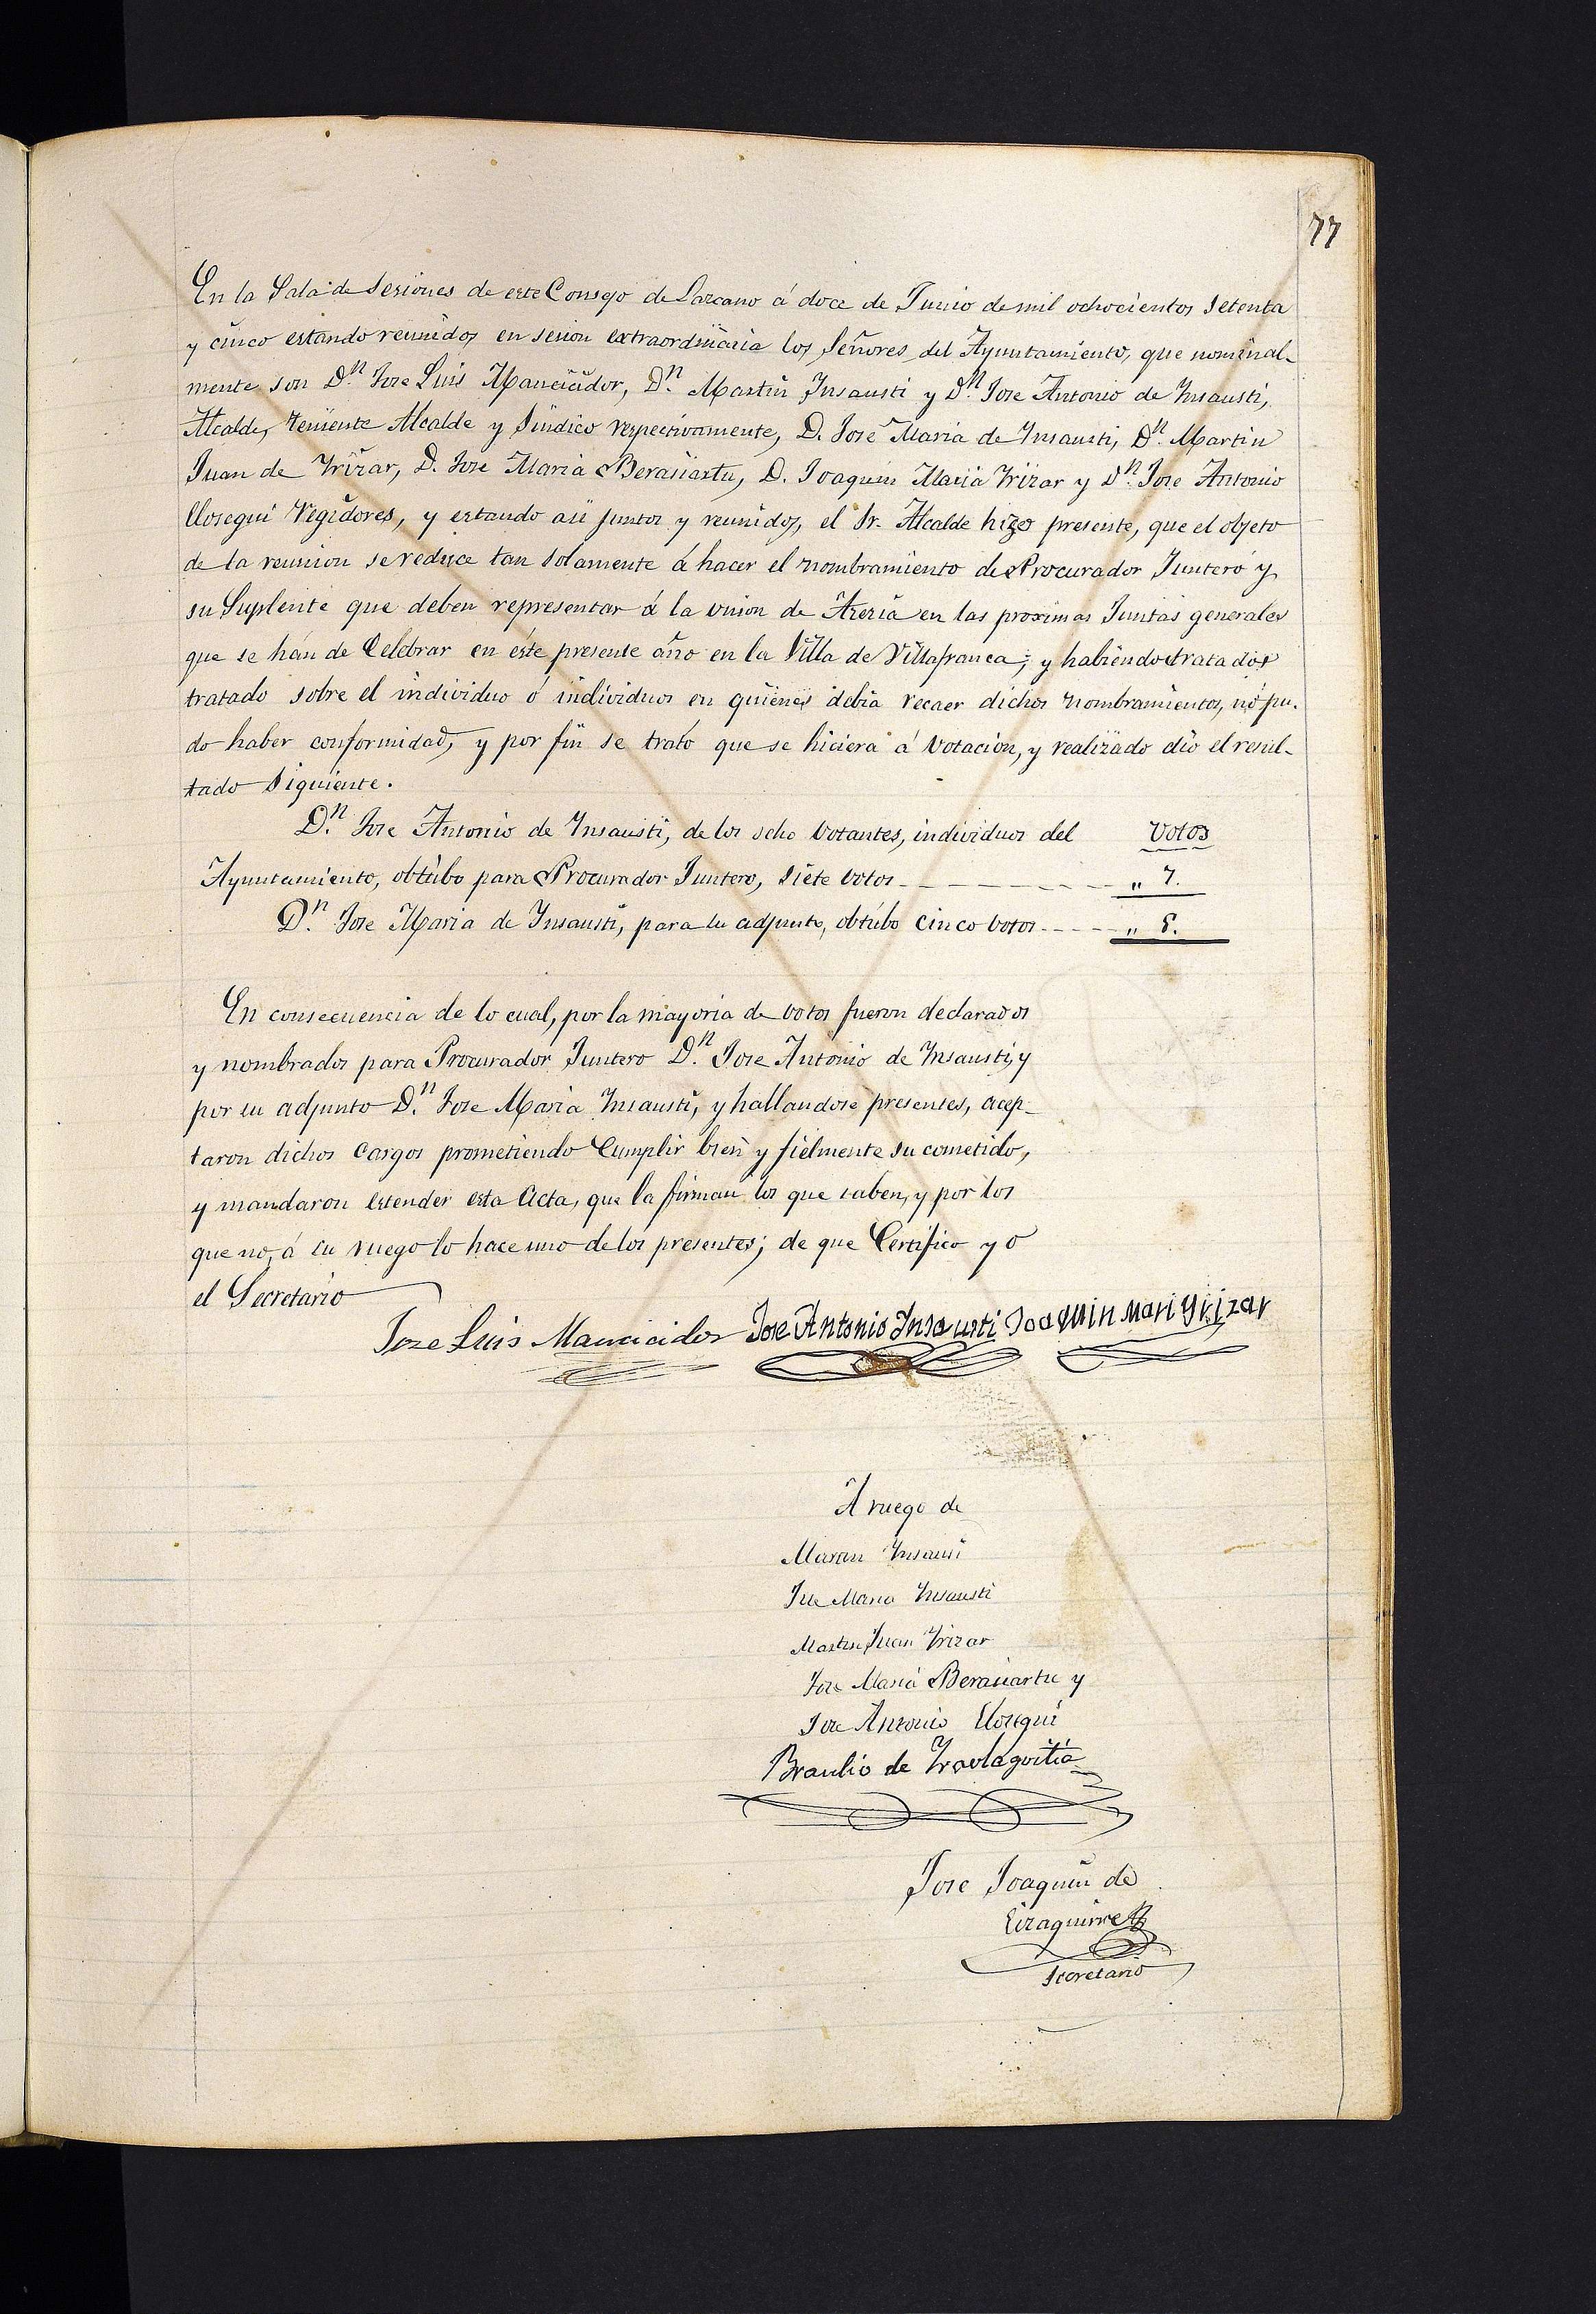 77
En la Sala de Sesiones de este Consejo de Lazcano á doce de Junio de mil ochocientos setenta
y cinco estando reunidos en sesion extraordinaria los Señores del Ayuntamiento, que nominal-
mente son D.n Jose Luis Mancicidor, D.n Martin Insausti y D.n Jose Antonio de Ynsausti,
Alcalde, teniente Alcalde y Sindico respectivamente, D. José Maria de Ynsausti, D.n Martin
Juan de Yrizar, D. Jose Maria Berasiartu, D. Joaquin Maria Yrizar y D.n Jose Antonio
Elosegui Regidores, y estando asi juntos y reunidos, el Sr. Alcalde hizo presente, que el objeto
de la reunion se reduce tan solamente á hacer el nombramiento de Procurador Juntero y
su Suplente que deben representar á la union de Arería en las proximas Juntas generales
que se hán de Celebrar en éste presente año en la Villa de Villafranca; y habiendo tratados
tratado sobre el individuo ó individuos en quienes debia recaer dichos nombramientos, nó pu-
do haber conformidad, y por fin se trató que se hiciera á votacion, y realizado dio el resul-
tado siguiente.
D.n Jose Antonio de Ynsausti, de los ocho votantes, individuos del Votos
Ayuntamiento, obtúbo para Procurador Juntero, siete votos - - - - - - - " 7.
D.n Jose Maria de Ynsausti, para su adjunto, obtúbo cinco votos - - - - " 5.
En consecuencia de lo cual, por la mayoria de votos fueron declarados
y nombrados para Procurador Juntero D.n Jose Antonio de Ynsausti, y
por su adjunto D.n Jose Maria Ynsausti, y hallandose presentes, acep-
taron dichos cargos prometiendo Cumplir bien y fielmente su cometido,
y mandaron estender esta Acta, que la firman los que saben, y por los
que no, á su ruego lo hace uno de los presentes; de que Certifico yo
el Secretario
Joze Luis Mancicidor Jose Antonio Insausti Joaquin Mari Yrizar
A ruego de
Martin Ynsausti
Jose Maria Ynsausti
Martin Juan Yrizar
Jose Maria Berasiartu y
Jose Antonio Elosegui
Braulio de Yraolagoitia
Jose Joaquin de
Eizaguirre
Secretario